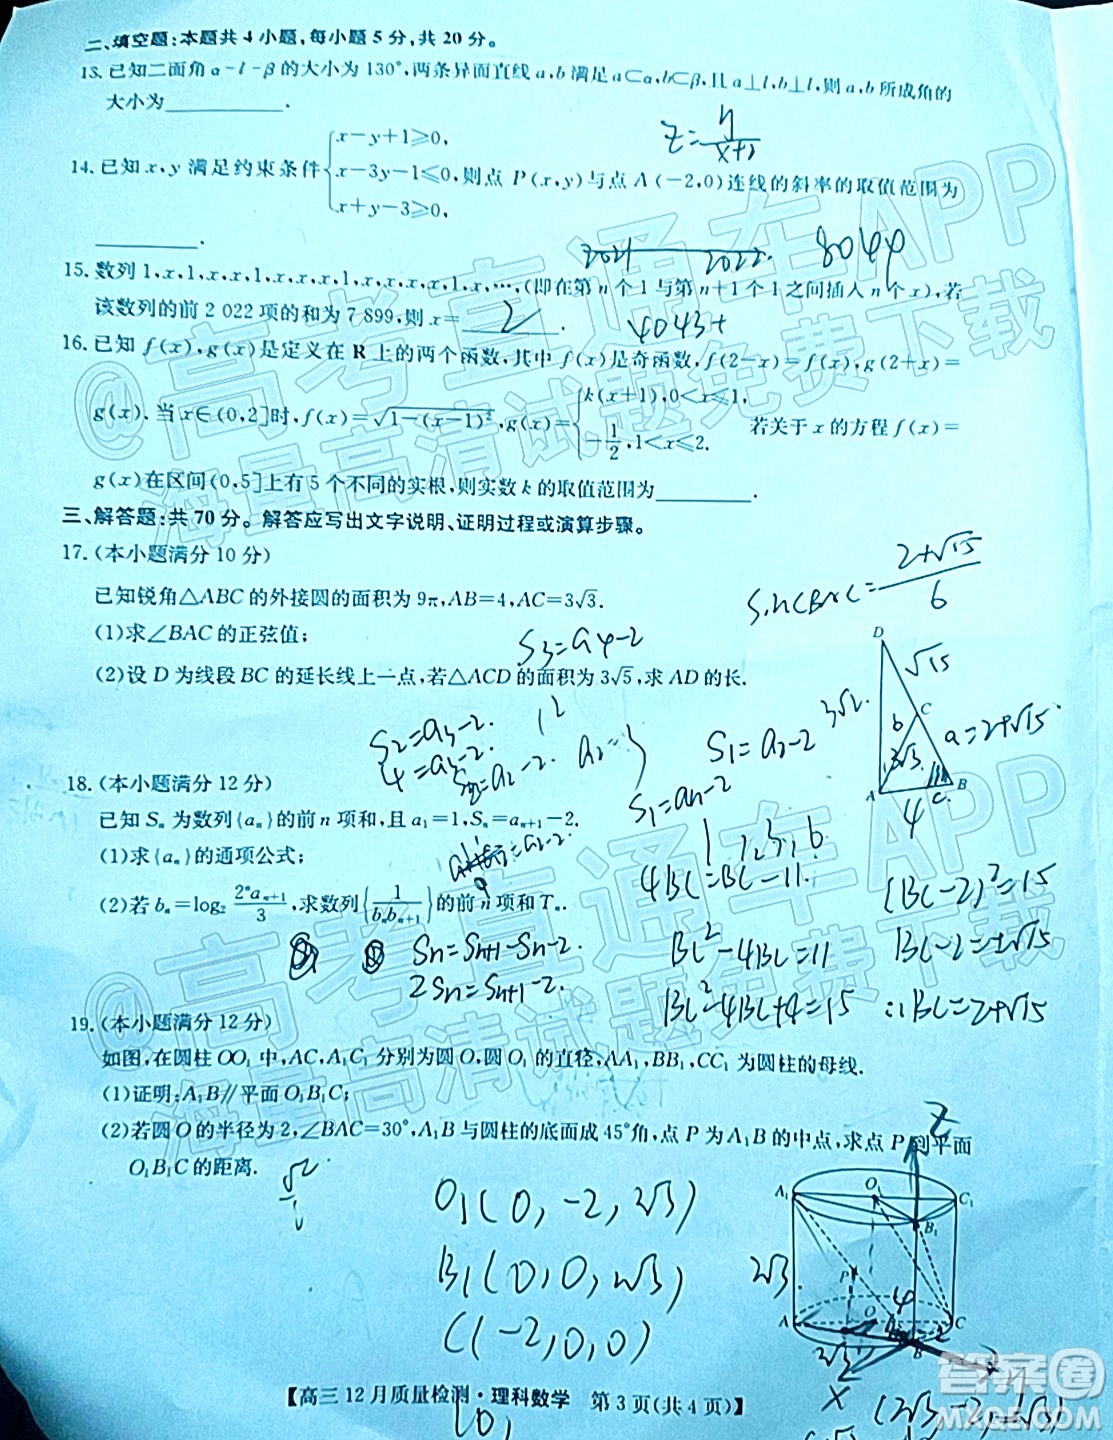 二、填空题:本题共 4 小题,每小题 5 分,共 20 分。
13. 已知二面角 α-l-β 的大小为 130°,两条异面直线 a,b 满足 a⊂α,b⊂β,且 a⊥l,b⊥l,则 a,b 所成角的
大小为________.
z=y/(x+2)
14. 已知 x,y 满足约束条件{x-y+1⩾0, x-3y-1⩽0, x+y-3⩾0, 则点 P(x,y)与点 A(-2,0)连线的斜率的取值范围为
________.
2021 2022. 8044
15. 数列 1,x,1,x,x,1,x,x,x,1,x,x,x,x,1,x,…,(即在第 n 个 1 与第 n+1 个 1 之间插入 n 个 x),若
该数列的前 2 022 项的和为 7 899,则 x= 2 .
4043+
16. 已知 f(x),g(x)是定义在 R 上的两个函数,其中 f(x)是奇函数,f(2-x)=f(x),g(2+x)=
g(x). 当 x∈(0,2]时,f(x)=√(1-(x-1)²),g(x)={k(x+1),0<x⩽1, -1/2,1<x⩽2. 若关于 x 的方程 f(x)=
g(x)在区间(0,5]上有 5 个不同的实根,则实数 k 的取值范围为________.
三、解答题:共 70 分。解答应写出文字说明、证明过程或演算步骤。
17. (本小题满分 10 分)
已知锐角△ABC 的外接圆的面积为 9π,AB=4,AC=3√3.
(1)求∠BAC 的正弦值;
(2)设 D 为线段 BC 的延长线上一点,若△ACD 的面积为 3√5,求 AD 的长.
sin∠BAC=(2+√15)/6
S3=a4-2
S2=a3-2.
4=a3-2.
S1=a2-2
S1=an-2
D
√15
3√2.
C
b
a=2+√15
A
B
c.
4
18. (本小题满分 12 分)
已知 Sₙ 为数列{aₙ}的前 n 项和,且 a₁=1,Sₙ=aₙ₊₁-2.
(1)求{aₙ}的通项公式;
(2)若 bₙ=log₂ (2ⁿaₙ₊₁)/3,求数列{1/(bₙbₙ₊₁)}的前 n 项和 Tₙ.
1,3,6
4BC=BC²-11.
(BC-2)²=15
Sn=Sn+1-Sn-2.
BC²-4BC=11
BC-2=±√15
2Sn=Sn+1-2.
BC²-4BC+4=15
∴BC=2+√15
19. (本小题满分 12 分)
如图,在圆柱 OO₁ 中,AC,A₁C₁ 分别为圆 O,圆 O₁ 的直径,AA₁,BB₁,CC₁ 为圆柱的母线.
(1)证明:A₁B∥平面 O₁B₁C;
(2)若圆 O 的半径为 2,∠BAC=30°,A₁B 与圆柱的底面成 45°角,点 P 为 A₁B 的中点,求点 P 到平面
O₁B₁C 的距离.
O₁(0,-2,2√3)
B₁(0,0,2√3)
C(-2,0,0)
Z
A₁
O₁
C₁
B₁
2√3
P
4
A
O
C
B
2
2√3
X
【高三 12 月质量检测·理科数学 第 3 页(共 4 页)】
@高考直通车APP
海量高清试题免费下载
@高考直通车APP
海量高清试题免费下载
答案圈
MXQE.COM